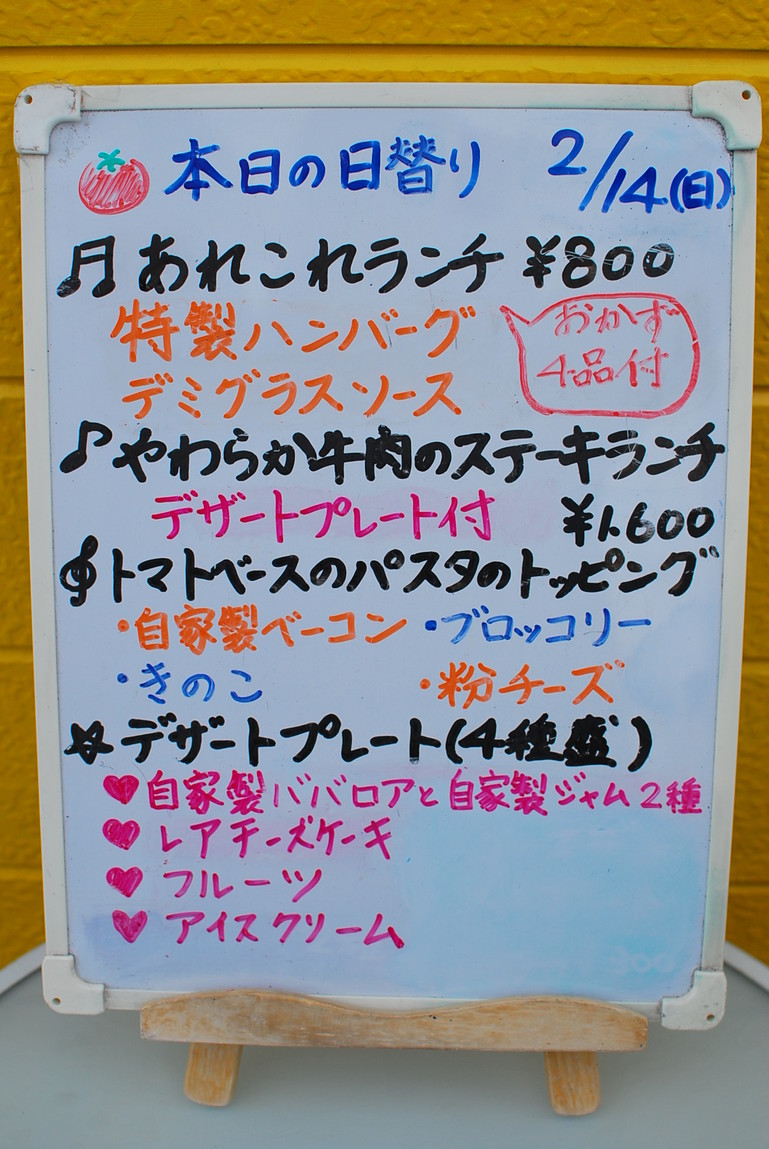 本日の日替り 2/14(日)
♫ あれこれランチ ¥800
特製ハンバーグ
デミグラスソース
おかず
4品付
♪ やわらか牛肉のステーキランチ
デザートプレート付 ¥1.600
𝄞 トマトベースのパスタのトッピング
・自家製ベーコン ・ブロッコリー
・きのこ ・粉チーズ
☆ デザートプレート(4種盛)
♥ 自家製ババロアと自家製ジャム2種
♥ レアチーズケーキ
♥ フルーツ
♥ アイスクリーム